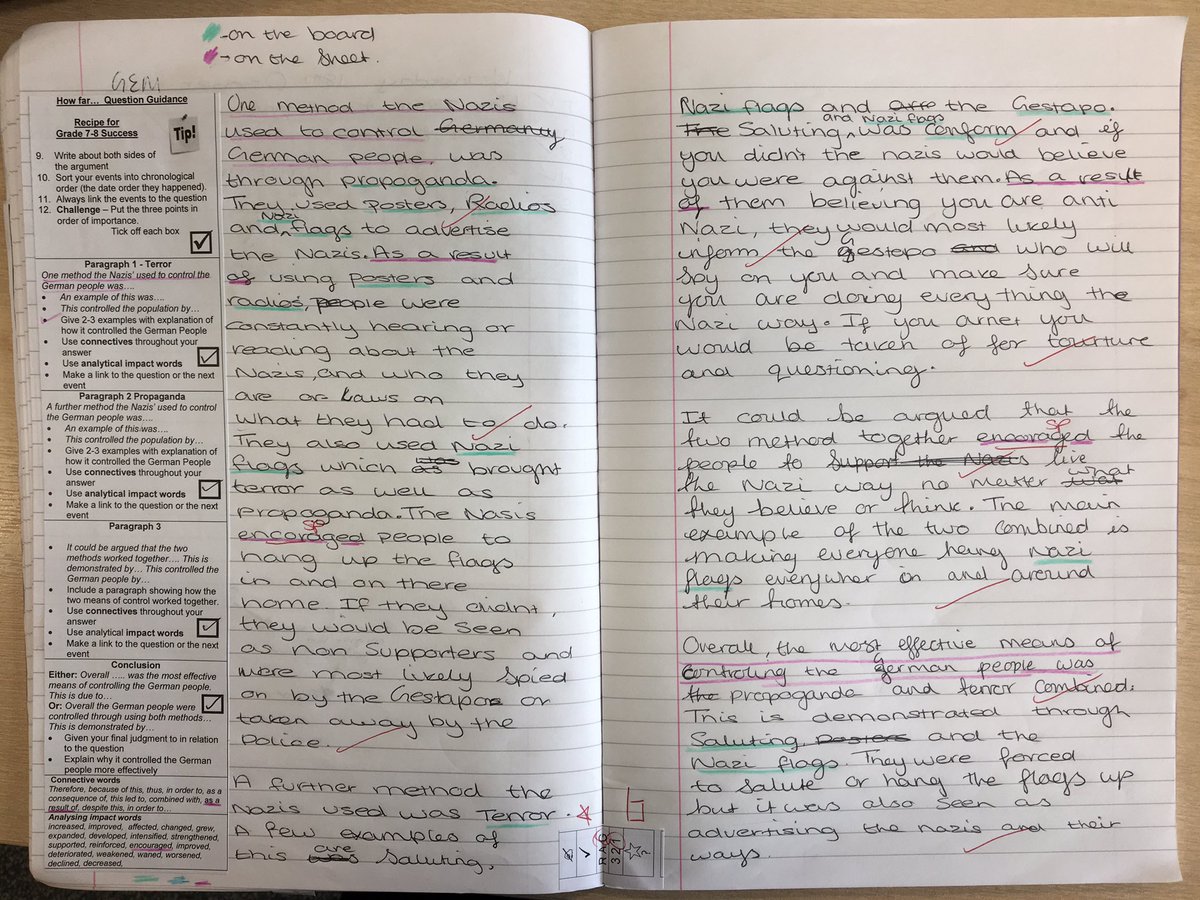 -on the board
→on the sheet.
GEM
How far… Question Guidance
Recipe for
Grade 7-8 Success
Tip!
9. Write about both sides of
the argument
10. Sort your events into chronological
order (the date order they happened).
11. Always link the events to the question
12. Challenge – Put the three points in
order of importance.
Tick off each box
Paragraph 1 - Terror
One method the Nazis' used to control the
German people was….
• An example of this was….
• This controlled the population by…
• Give 2-3 examples with explanation of
how it controlled the German People
• Use connectives throughout your
answer
• Use analytical impact words
• Make a link to the question or the next
event
Paragraph 2 Propaganda
A further method the Nazis' used to control
the German people was….
• An example of this was….
• This controlled the population by…
• Give 2-3 examples with explanation of
how it controlled the German People
• Use connectives throughout your
answer
• Use analytical impact words
• Make a link to the question or the next
event
Paragraph 3
• It could be argued that the two
methods worked together…. This is
demonstrated by… This controlled the
German people by…
• Include a paragraph showing how the
two means of control worked together.
• Use connectives throughout your
answer
• Use analytical impact words
• Make a link to the question or the next
event
Conclusion
Either: Overall ….. was the most effective
means of controlling the German people.
This is due to…
Or: Overall the German people were
controlled through using both methods…
This is demonstrated by…
• Given your final judgment to in relation
to the question
• Explain why it controlled the German
people more effectively
Connective words
Therefore, because of this, thus, in order to, as a
consequence of, this led to, combined with, as a
result of, despite this, in order to…
Analysing impact words
increased, improved, affected, changed, grew,
expanded, developed, intensified, strengthened,
supported, reinforced, encouraged, improved,
deteriorated, weakened, waned, worsened,
declined, decreased,
One method the Nazis
used to control Germanty
German people, was
through propoganda.
They used posters, Radios
and Nazi flags to advertise
the Nazis. As a result
of using posters and
radios, people were
constantly hearing or
reading about the
Nazis, and who they
are or Laws on
what they had to do.
They also used Nazi
flags which was brought
terror as well as
Propaganda. The Nasis
sp
encoraged people to
hang up the flags
in and on there
home. If they didnt,
they would be seen
as non supporters and
were most likely spied
on by the Gestapos or
taken away by the
Police.
A further method the
Nazis used was Terror.
A few examples of
this are saluting,
RAG
321
Nazi flags and the Gestapo.
The Saluting and Nazi flags was conform and if
you didn't the nazis would believe
you were against them. As a result
of them believing you are anti
Nazi, they would most likely
inform the Gestapo and who will
spy on you and make sure
you are doing every thing the
Nazi way. If you arnet you
would be taken of for tourture
and questioning.
It could be argued that the
sp
two method together encoraged the
people to Support the Nazis live
the Nazi way no matter what
they believe or think. The main
example of the two combined is
making everyone hang Nazi
flags everywher in and around
their homes.
Overall, the most effective means of
controling the German people was
the propogande and terror combined.
This is demonstrated through
Saluting, Posters and the
Nazi flags. They were forced
to salute or hang the flags up
but it was also seen as
advertising the nazis and their
ways.